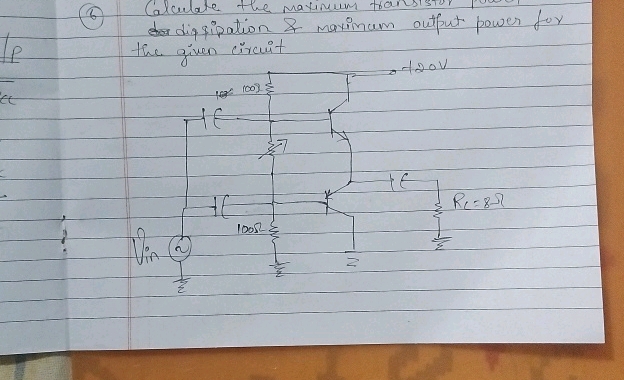 6 Calculate the maximum transistor power
dissipation & maximum output power for
the given circuit
+20V
100Ω
RL=8Ω
100Ω
Vin